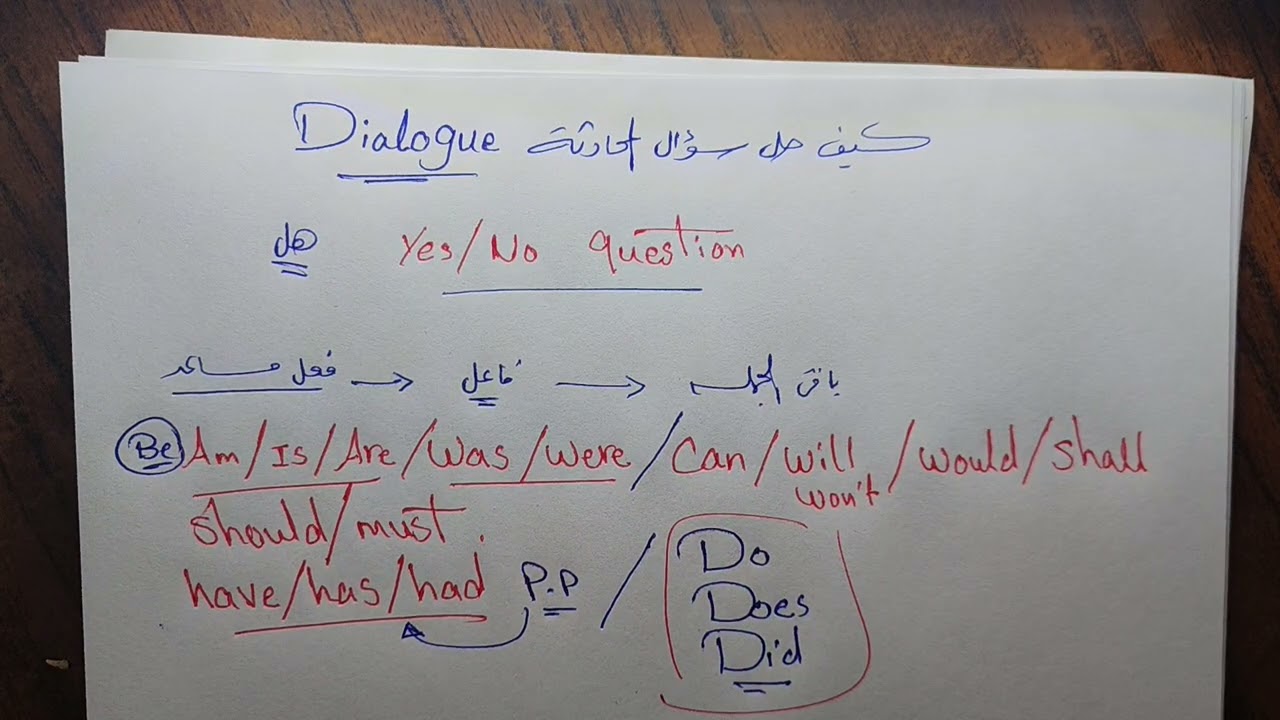 Dialogue كيف حل سؤال المحادثة
هل Yes/No question
فعل مساعد → فاعل → باقي الجملة
Be Am/Is/Are/Was/were/Can/will/would/shall
won't
should/must.
have/has/had P.P / Do
Does
Did